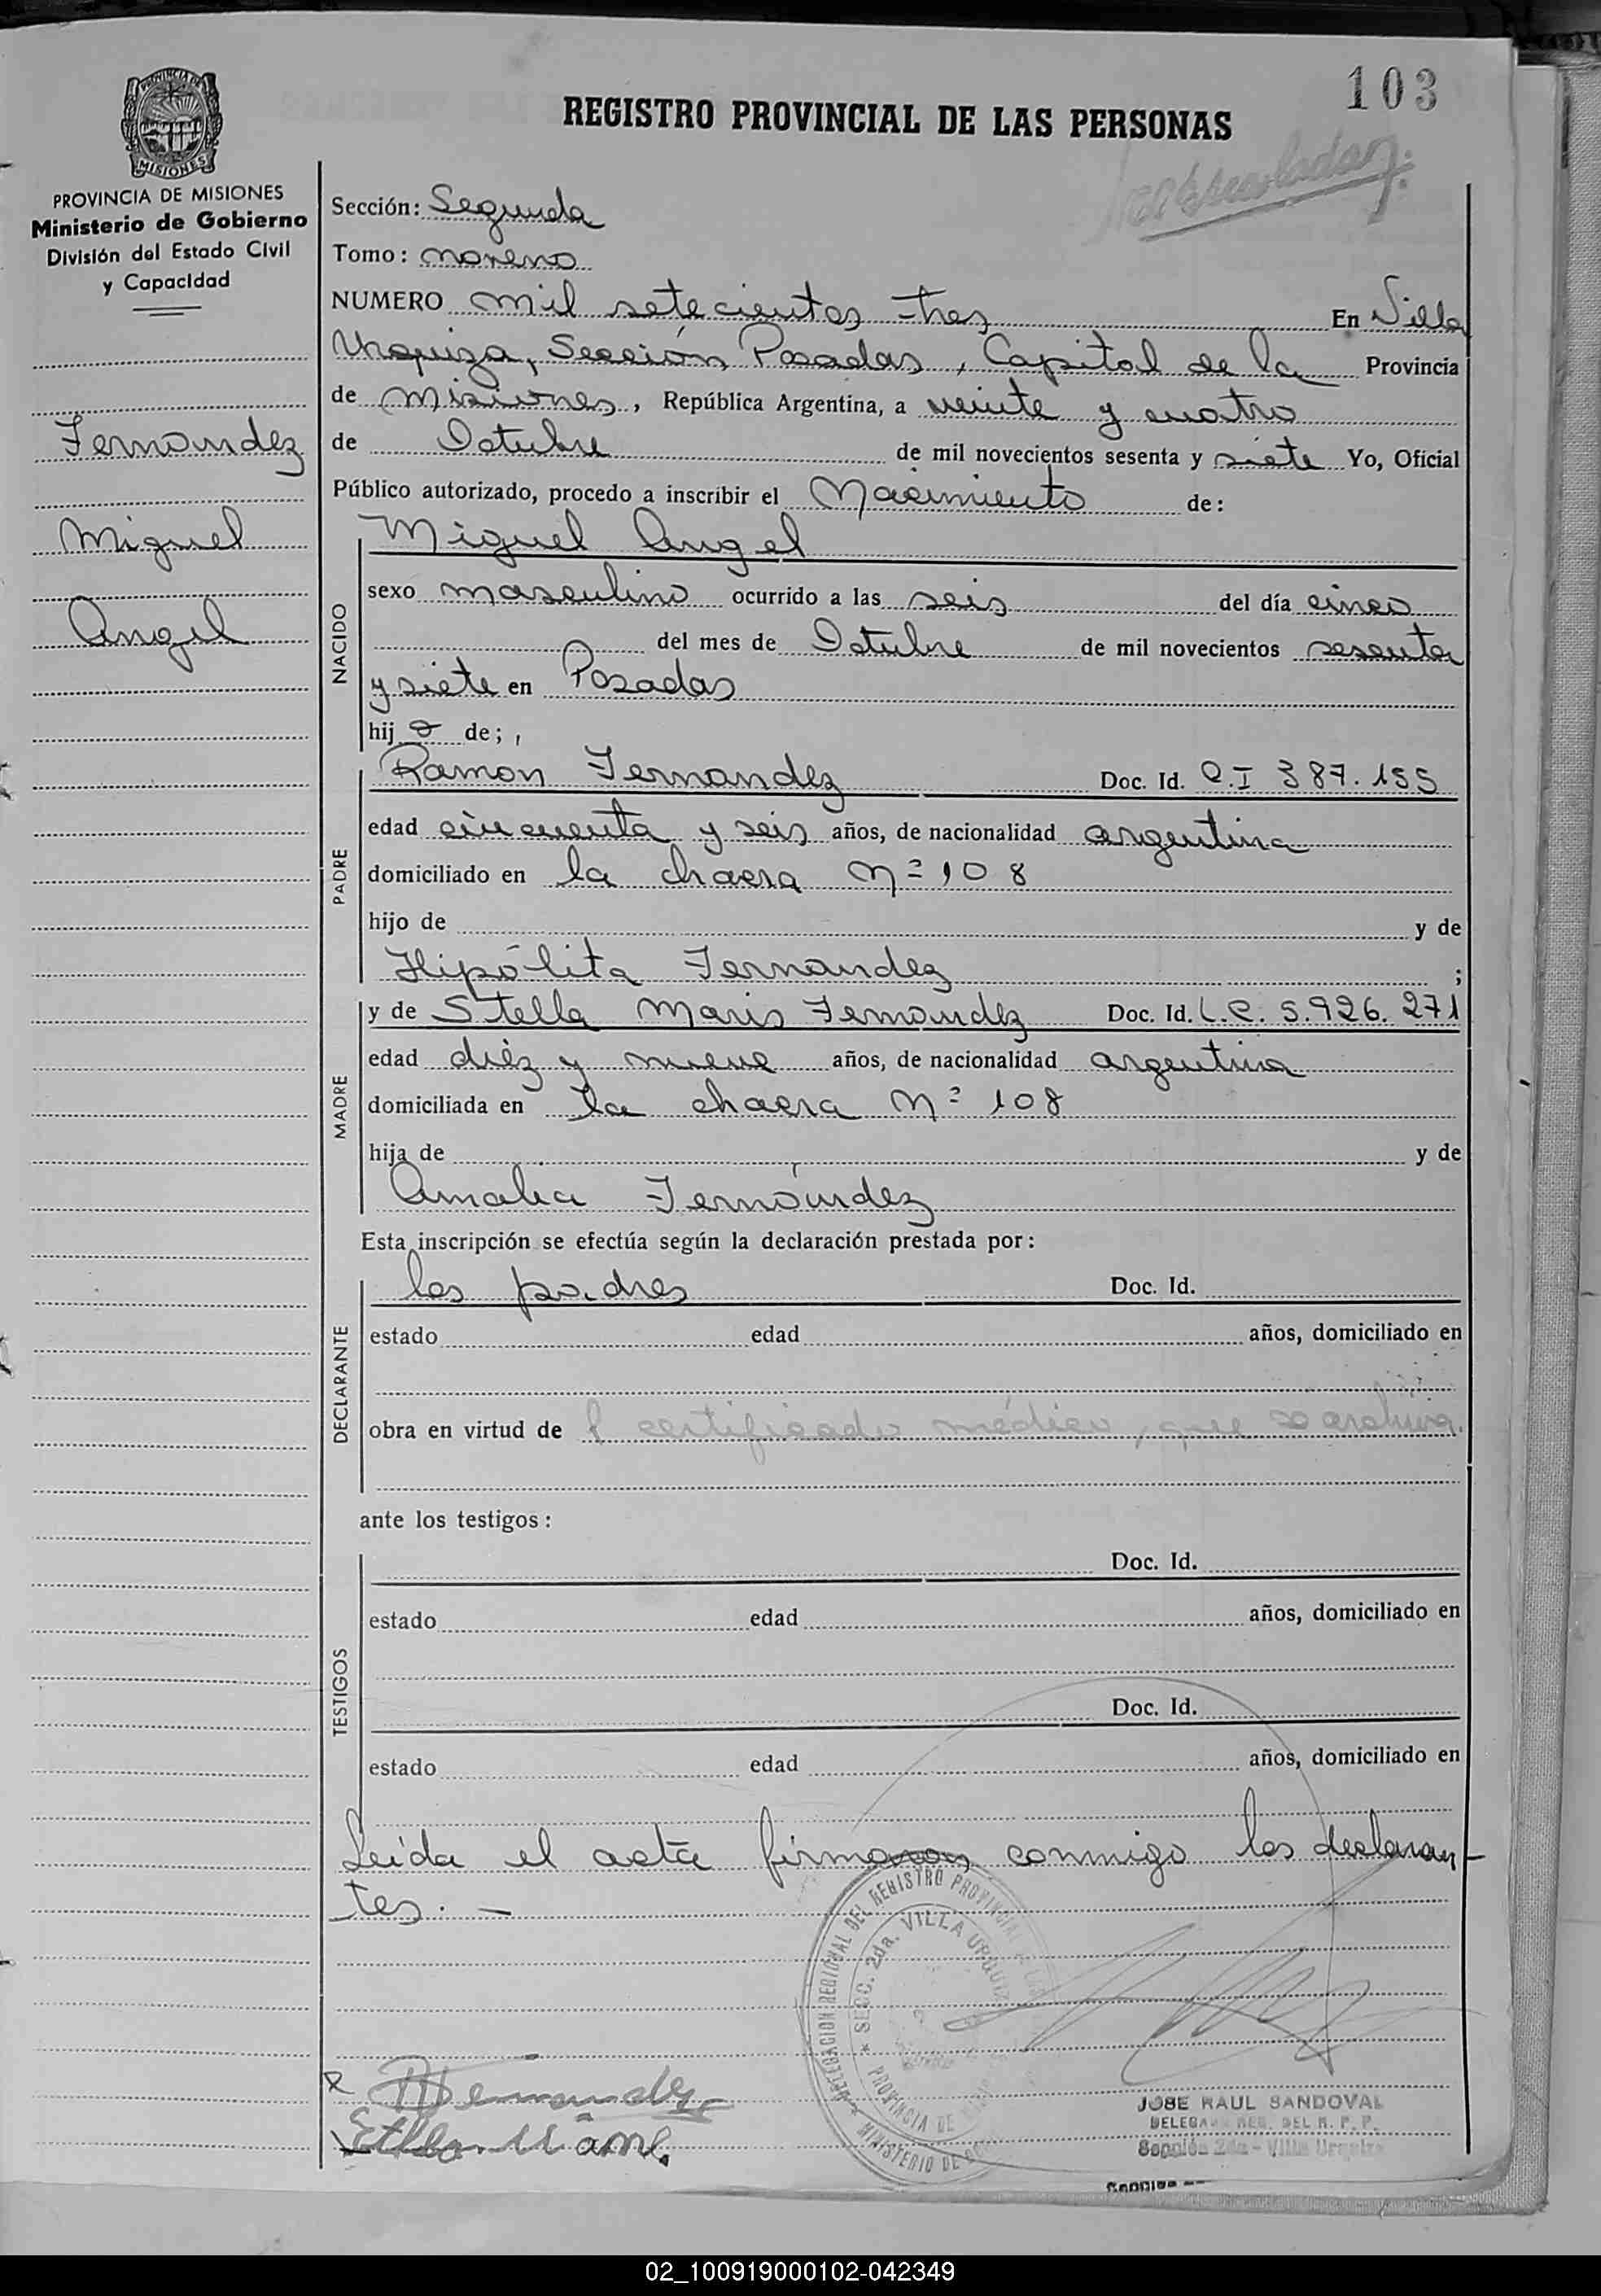 103
REGISTRO PROVINCIAL DE LAS PERSONAS
PROVINCIA DE
MISIONES
PROVINCIA DE MISIONES
Ministerio de Gobierno
División del Estado Civil
y Capacidad
Fernandez
Miguel
Angel
Sección: Segunda
Tomo: noveno
NUMERO mil setecientos tres En Villa
Urquiza, Sección Posadas, Capital de la Provincia
de Misiones, República Argentina, a veinte y cuatro
de Octubre de mil novecientos sesenta y siete Yo, Oficial
Público autorizado, procedo a inscribir el Nacimiento de:
NACIDO
Miguel Angel
sexo masculino ocurrido a las seis del día cinco
del mes de Octubre de mil novecientos sesenta
y siete en Posadas
hijo de; ,
PADRE
Ramon Fernandez Doc. Id. C.I 387.155
edad cincuenta y seis años, de nacionalidad argentina
domiciliado en la chacra Nº 108
hijo de y de
Hipólita Fernandez ;
MADRE
y de Stella Maris Fernandez Doc. Id. L.C. 5.926.271
edad diéz y nueve años, de nacionalidad argentina
domiciliada en la chacra Nº 108
hija de y de
Amalia Fernández
Esta inscripción se efectúa según la declaración prestada por:
DECLARANTE
los padres Doc. Id.
estado edad años, domiciliado en
obra en virtud de l certificado médico, que se archiva.
ante los testigos:
TESTIGOS
Doc. Id.
estado edad años, domiciliado en
Doc. Id.
estado edad años, domiciliado en
Leída el acta firmaron conmigo los declaran-
tes. —
DELEGACION REGIONAL DEL REGISTRO PROVINCIAL DE LAS
* SECC. 2da. VILLA URQUIZA
PROVINCIA DE
MINISTERIO DE
JOSE RAUL SANDOVAL
DELEGADO REG. DEL R. P. P.
Sección 2da - Villa Urquiza
Sección
02_100919000102-042349